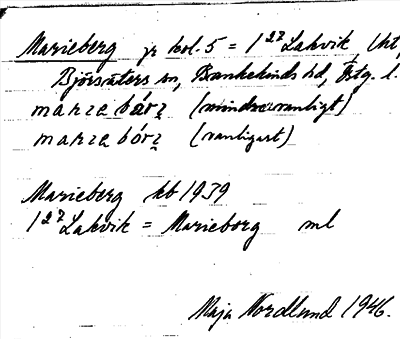 Marieberg jr kol. 5 = 1²⁷ Lakvik, Uht,
Björsäters sn, Bankekinds hd, Östg. l.
marɩabárɩ̨ (mindre vanligt)
marɩabórɩ̨ (vanligast)
Marieberg kb 1939
1²⁷ Lakvik = Marieborg ml
Maja Nordlund 1946.